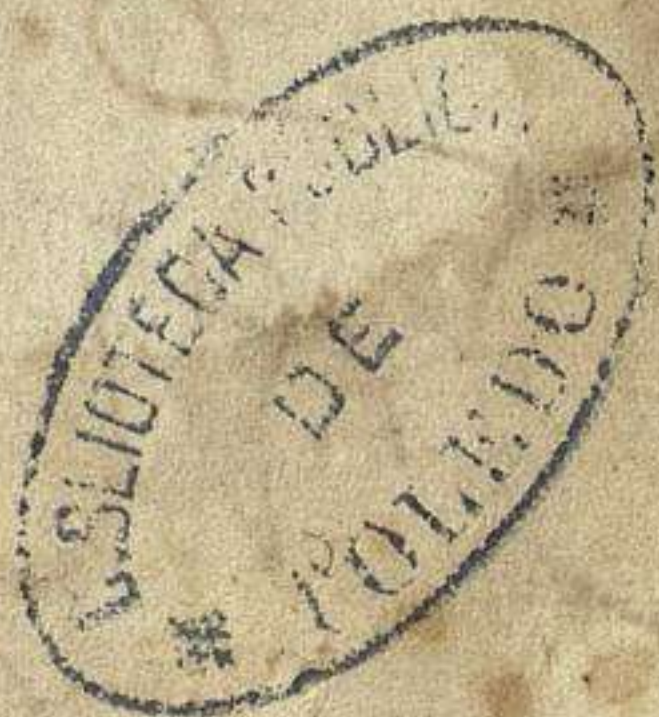 BIBLIOTECA PUBLICA
DE
* TOLEDO *